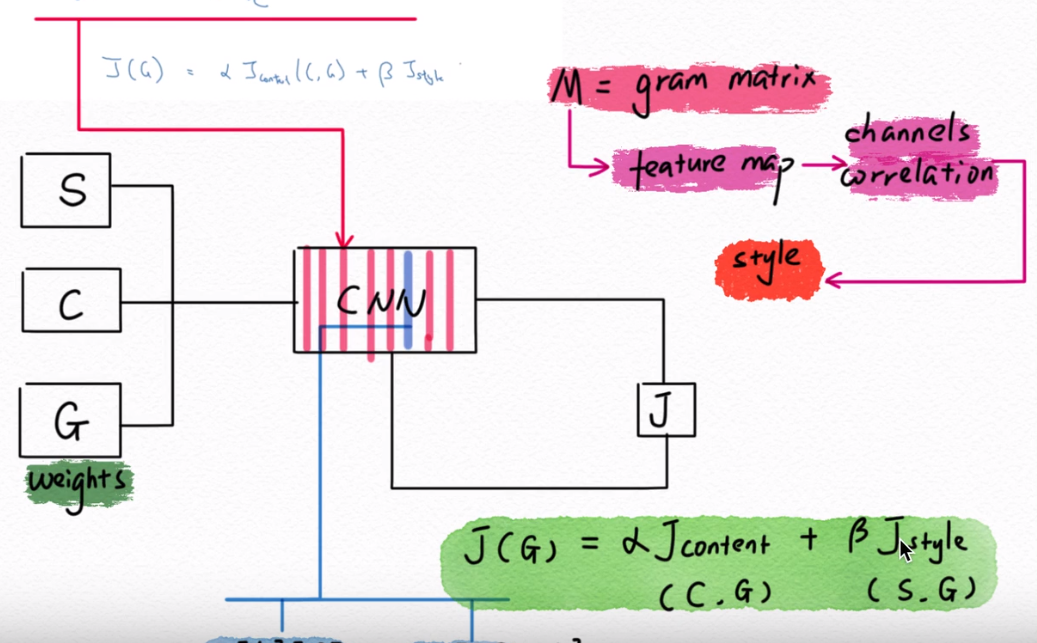 J(G) = α Jcontent(C,G) + β Jstyle
M = gram matrix
feature map
channels
correlation
style
S
C
G
weights
CNN
J
J(G) = α Jcontent + β Jstyle
(C.G) (S.G)